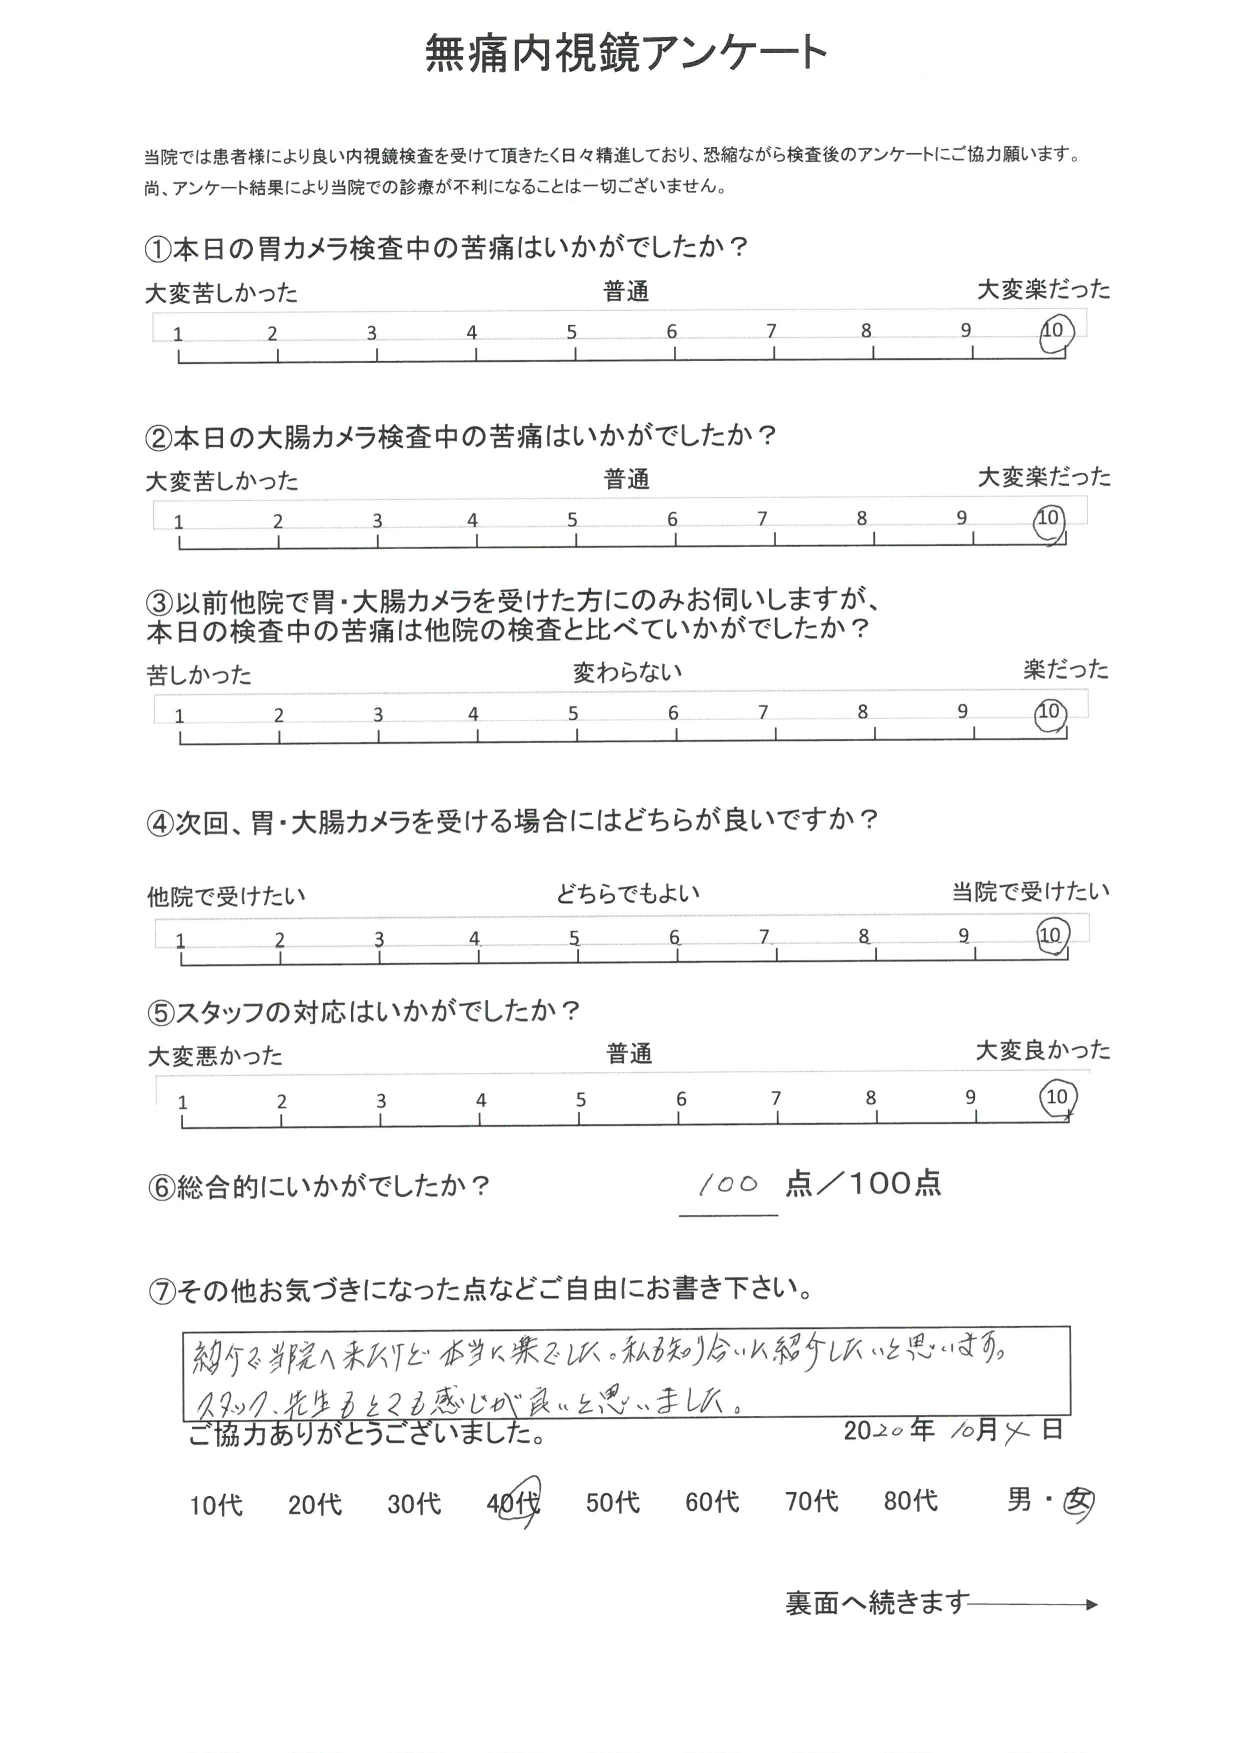 無痛内視鏡アンケート
当院では患者様により良い内視鏡検査を受けて頂きたく日々精進しており、恐縮ながら検査後のアンケートにご協力願います。
尚、アンケート結果により当院での診療が不利になることは一切ございません。
①本日の胃カメラ検査中の苦痛はいかがでしたか？
大変苦しかった 普通 大変楽だった
1 2 3 4 5 6 7 8 9 10
②本日の大腸カメラ検査中の苦痛はいかがでしたか？
大変苦しかった 普通 大変楽だった
1 2 3 4 5 6 7 8 9 10
③以前他院で胃・大腸カメラを受けた方にのみお伺いしますが、
本日の検査中の苦痛は他院の検査と比べていかがでしたか？
苦しかった 変わらない 楽だった
1 2 3 4 5 6 7 8 9 10
④次回、胃・大腸カメラを受ける場合にはどちらが良いですか？
他院で受けたい どちらでもよい 当院で受けたい
1 2 3 4 5 6 7 8 9 10
⑤スタッフの対応はいかがでしたか？
大変悪かった 普通 大変良かった
1 2 3 4 5 6 7 8 9 10
⑥総合的にいかがでしたか？ 100 点／100点
⑦その他お気づきになった点などご自由にお書き下さい。
紹介で当院へ来たけど本当に楽でした。私も知り合いに紹介したいと思います。
スタッフ、先生もとても感じが良いと思いました。
ご協力ありがとうございました。 2020年 10月 4 日
10代 20代 30代 40代 50代 60代 70代 80代 男・女
裏面へ続きます